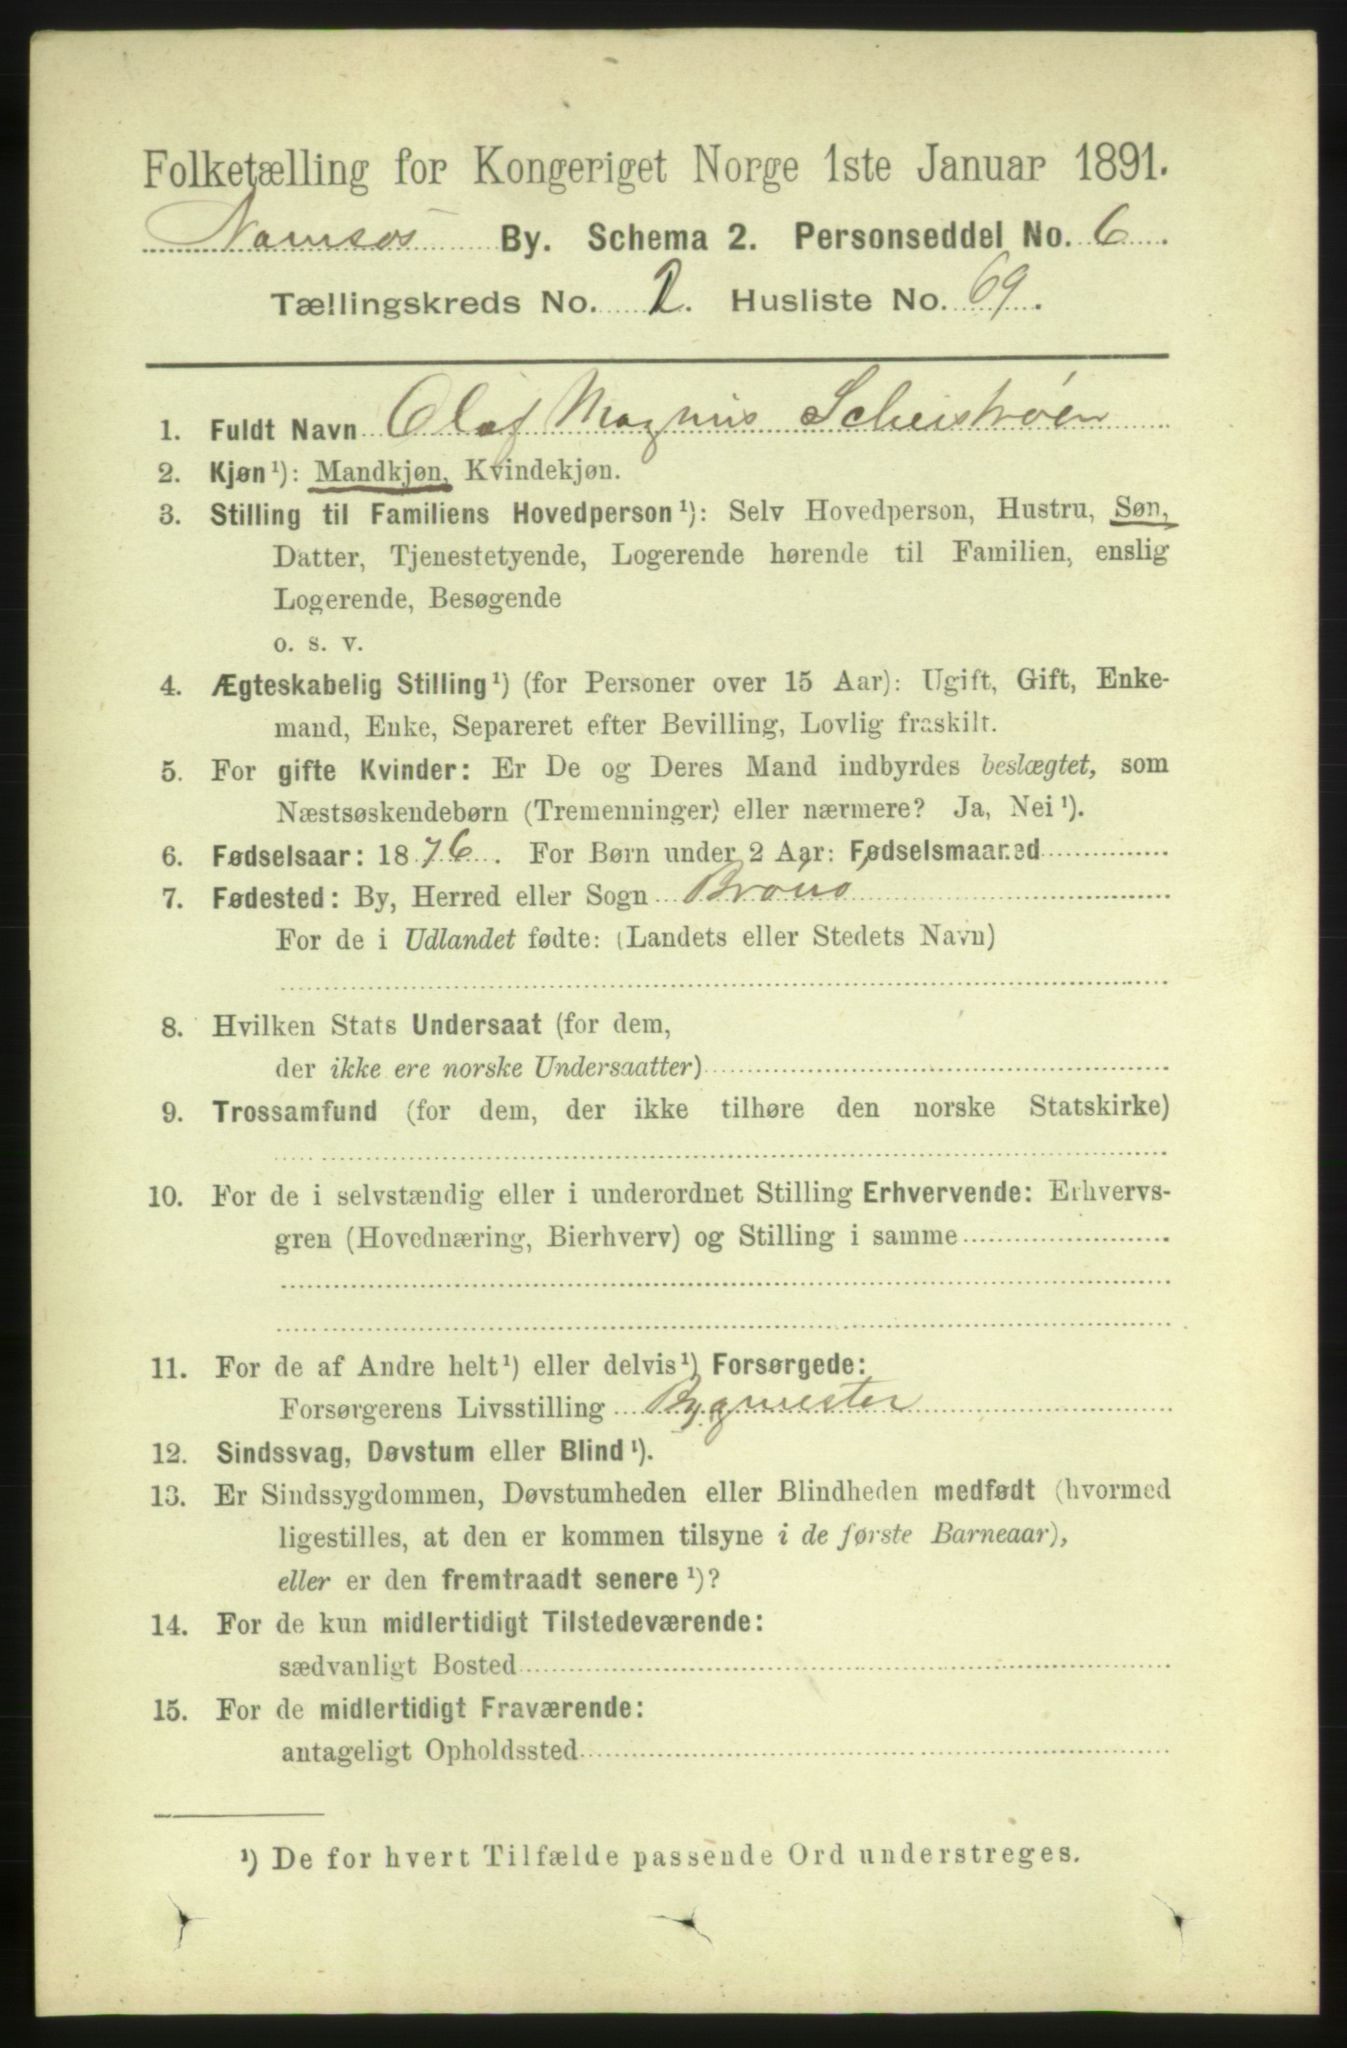 Folketælling for Kongeriget Norge 1ste Januar 1891.
Namsos By. Schema 2. Personseddel No. 6.
Tællingskreds No. 2. Husliste No. 69.
1. Fuldt Navn Olaf Magnus Scheistrøen
2. Kjøn¹): Mandkjøn, Kvindekjøn.
3. Stilling til Familiens Hovedperson¹): Selv Hovedperson, Hustru, Søn,
Datter, Tjenestetyende, Logerende hørende til Familien, enslig
Logerende, Besøgende
o. s. v.
4. Ægteskabelig Stilling¹) (for Personer over 15 Aar): Ugift, Gift, Enke-
mand, Enke, Separeret efter Bevilling, Lovlig fraskilt.
5. For gifte Kvinder: Er De og Deres Mand indbyrdes beslægtet, som
Næstsøskendebørn (Tremenninger) eller nærmere? Ja, Nei¹).
6. Fødselsaar: 1876. For Børn under 2 Aar: Fødselsmaaned
7. Fødested: By, Herred eller Sogn Brønø
For de i Udlandet fødte: (Landets eller Stedets Navn)
8. Hvilken Stats Undersaat (for dem,
der ikke ere norske Undersaatter)
9. Trossamfund (for dem, der ikke tilhøre den norske Statskirke)
10. For de i selvstændig eller i underordnet Stilling Erhvervende: Erhvervs-
gren (Hovednæring, Bierhverv) og Stilling i samme
11. For de af Andre helt¹) eller delvis¹) Forsørgede:
Forsørgerens Livsstilling Bygmester
12. Sindssvag, Døvstum eller Blind¹).
13. Er Sindssygdommen, Døvstumheden eller Blindheden medfødt (hvormed
ligestilles, at den er kommen tilsyne i de første Barneaar),
eller er den fremtraadt senere¹)?
14. For de kun midlertidigt Tilstedeværende:
sædvanligt Bosted
15. For de midlertidigt Fraværende:
antageligt Opholdssted
¹) De for hvert Tilfælde passende Ord understreges.